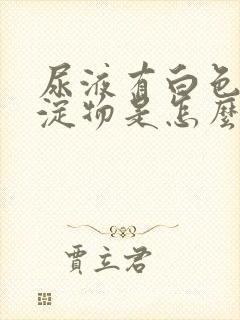 尿液有白色
淀物是怎麼
賈立君